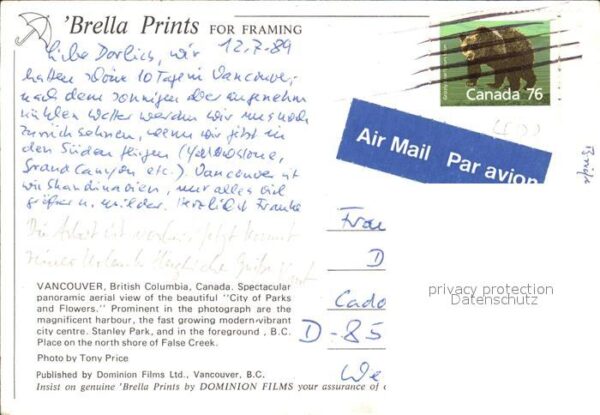 'Brella Prints FOR FRAMING
12.7.89
Liebe Dorlich, wir
hatten schöne 10 Tage in Vancouver,
nach dem sonnigen aber angenehm
kühlen Wetter werden wir uns noch
zurücksehnen, wenn wir jetzt in
den Süden fliegen (Yellowstone,
Grand Canyon etc.). Vancouver ist
wie Skandinavien, nur alles viel
größer u. wilder. Herzlichst Frauke
Die Arbeit ist vorbei jetzt kommt
Urlaub Herzliche Grüße
Canada 76
Air Mail Par avion
Frau
D
Cado
D-85
We
privacy protection
Datenschutz
VANCOUVER, British Columbia, Canada. Spectacular
panoramic aerial view of the beautiful "City of Parks
and Flowers." Prominent in the photograph are the
magnificent harbour, the fast growing modern-vibrant
city centre. Stanley Park, and in the foreground , B.C.
Place on the north shore of False Creek.
Photo by Tony Price
Published by Dominion Films Ltd., Vancouver, B.C.
Insist on genuine 'Brella Prints by DOMINION FILMS your assurance of